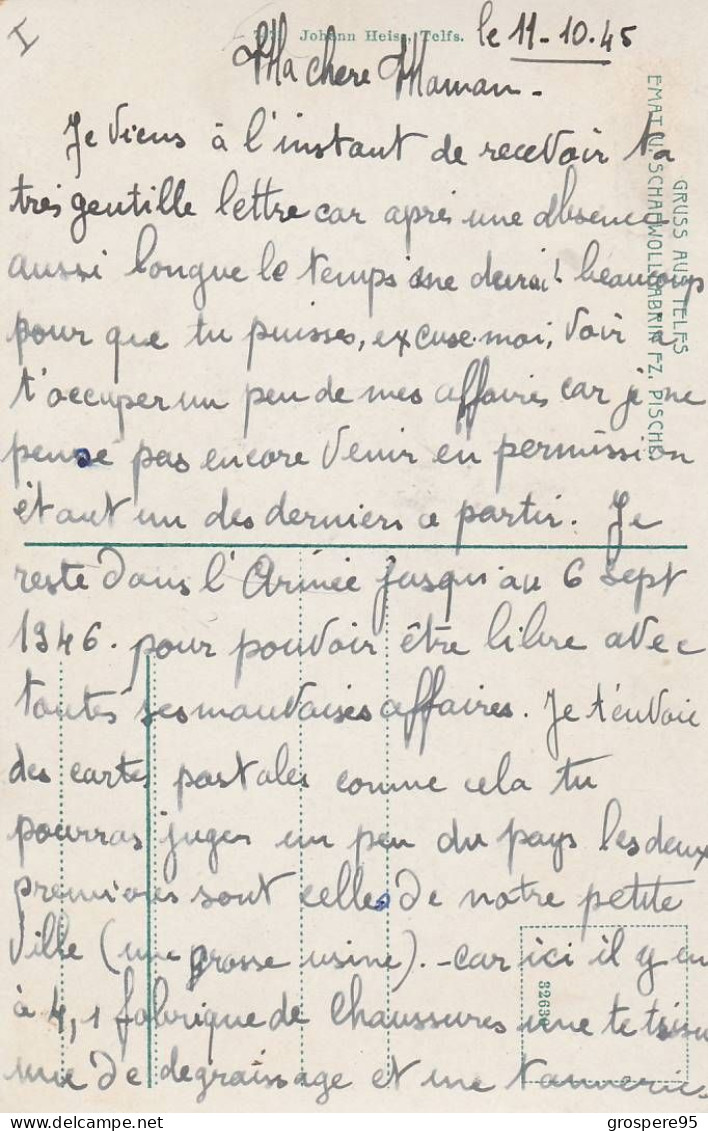 I
Johann Heiss, Telfs.
le 11-10.45
Ma chere Maman.
Je viens à l'instant de recevoir ta
très gentille lettre car après une absence
aussi longue le temps me devrait beaucoup
pour que tu puisses, excuse-moi, voir à
t'occuper un peu de mes affaires car je ne
pense pas encore venir en permission
étant un des derniers a partir. Je
reste dans l'Armée jusqu'au 6 sept
1946. pour pouvoir être libre avec
toutes ses mauvaises affaires. Je t'envoie
des cartes postales comme cela tu
pourras juger un peu du pays les deux
premières sont celles de notre petite
ville (une grosse usine). - car ici il y en
à 4, 1 fabrique de chaussures une de tissu
une de degraissage et une tannerie.
GRUSS AUS TELFS
SCHAFWOLLFABRIK FZ. PISCHL
3263
grospere95